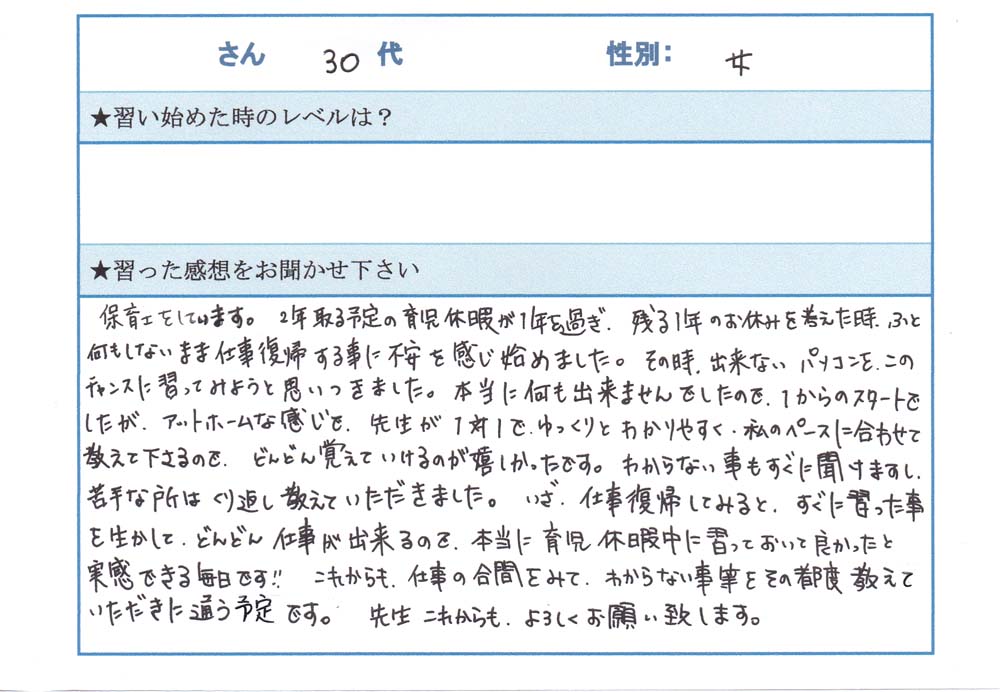 さん 30 代 性別： 女
★習い始めた時のレベルは？
★習った感想をお聞かせ下さい
保育士をしています。 2年取る予定の育児休暇が1年を過ぎ、残る1年のお休みを考えた時、ふと
何もしないまま仕事復帰する事に不安を感じ始めました。その時、出来ないパソコンを、この
チャンスに習ってみようと思いつきました。本当に何も出来ませんでしたので、1からのスタートで
したが、アットホームな感じで、先生が1対1で、ゆっくりとわかりやすく、私のペースに合わせて
教えて下さるので、どんどん覚えていけるのが嬉しかったです。わからない事もすぐに聞けますし、
苦手な所はくり返し教えていただきました。いざ、仕事復帰してみると、すぐに習った事
を生かして、どんどん仕事が出来るので、本当に育児休暇中に習っておいて良かったと
実感できる毎日です!! これからも、仕事の合間をみて、わからない事等をその都度教えて
いただきに通う予定です。 先生これからも、よろしくお願い致します。